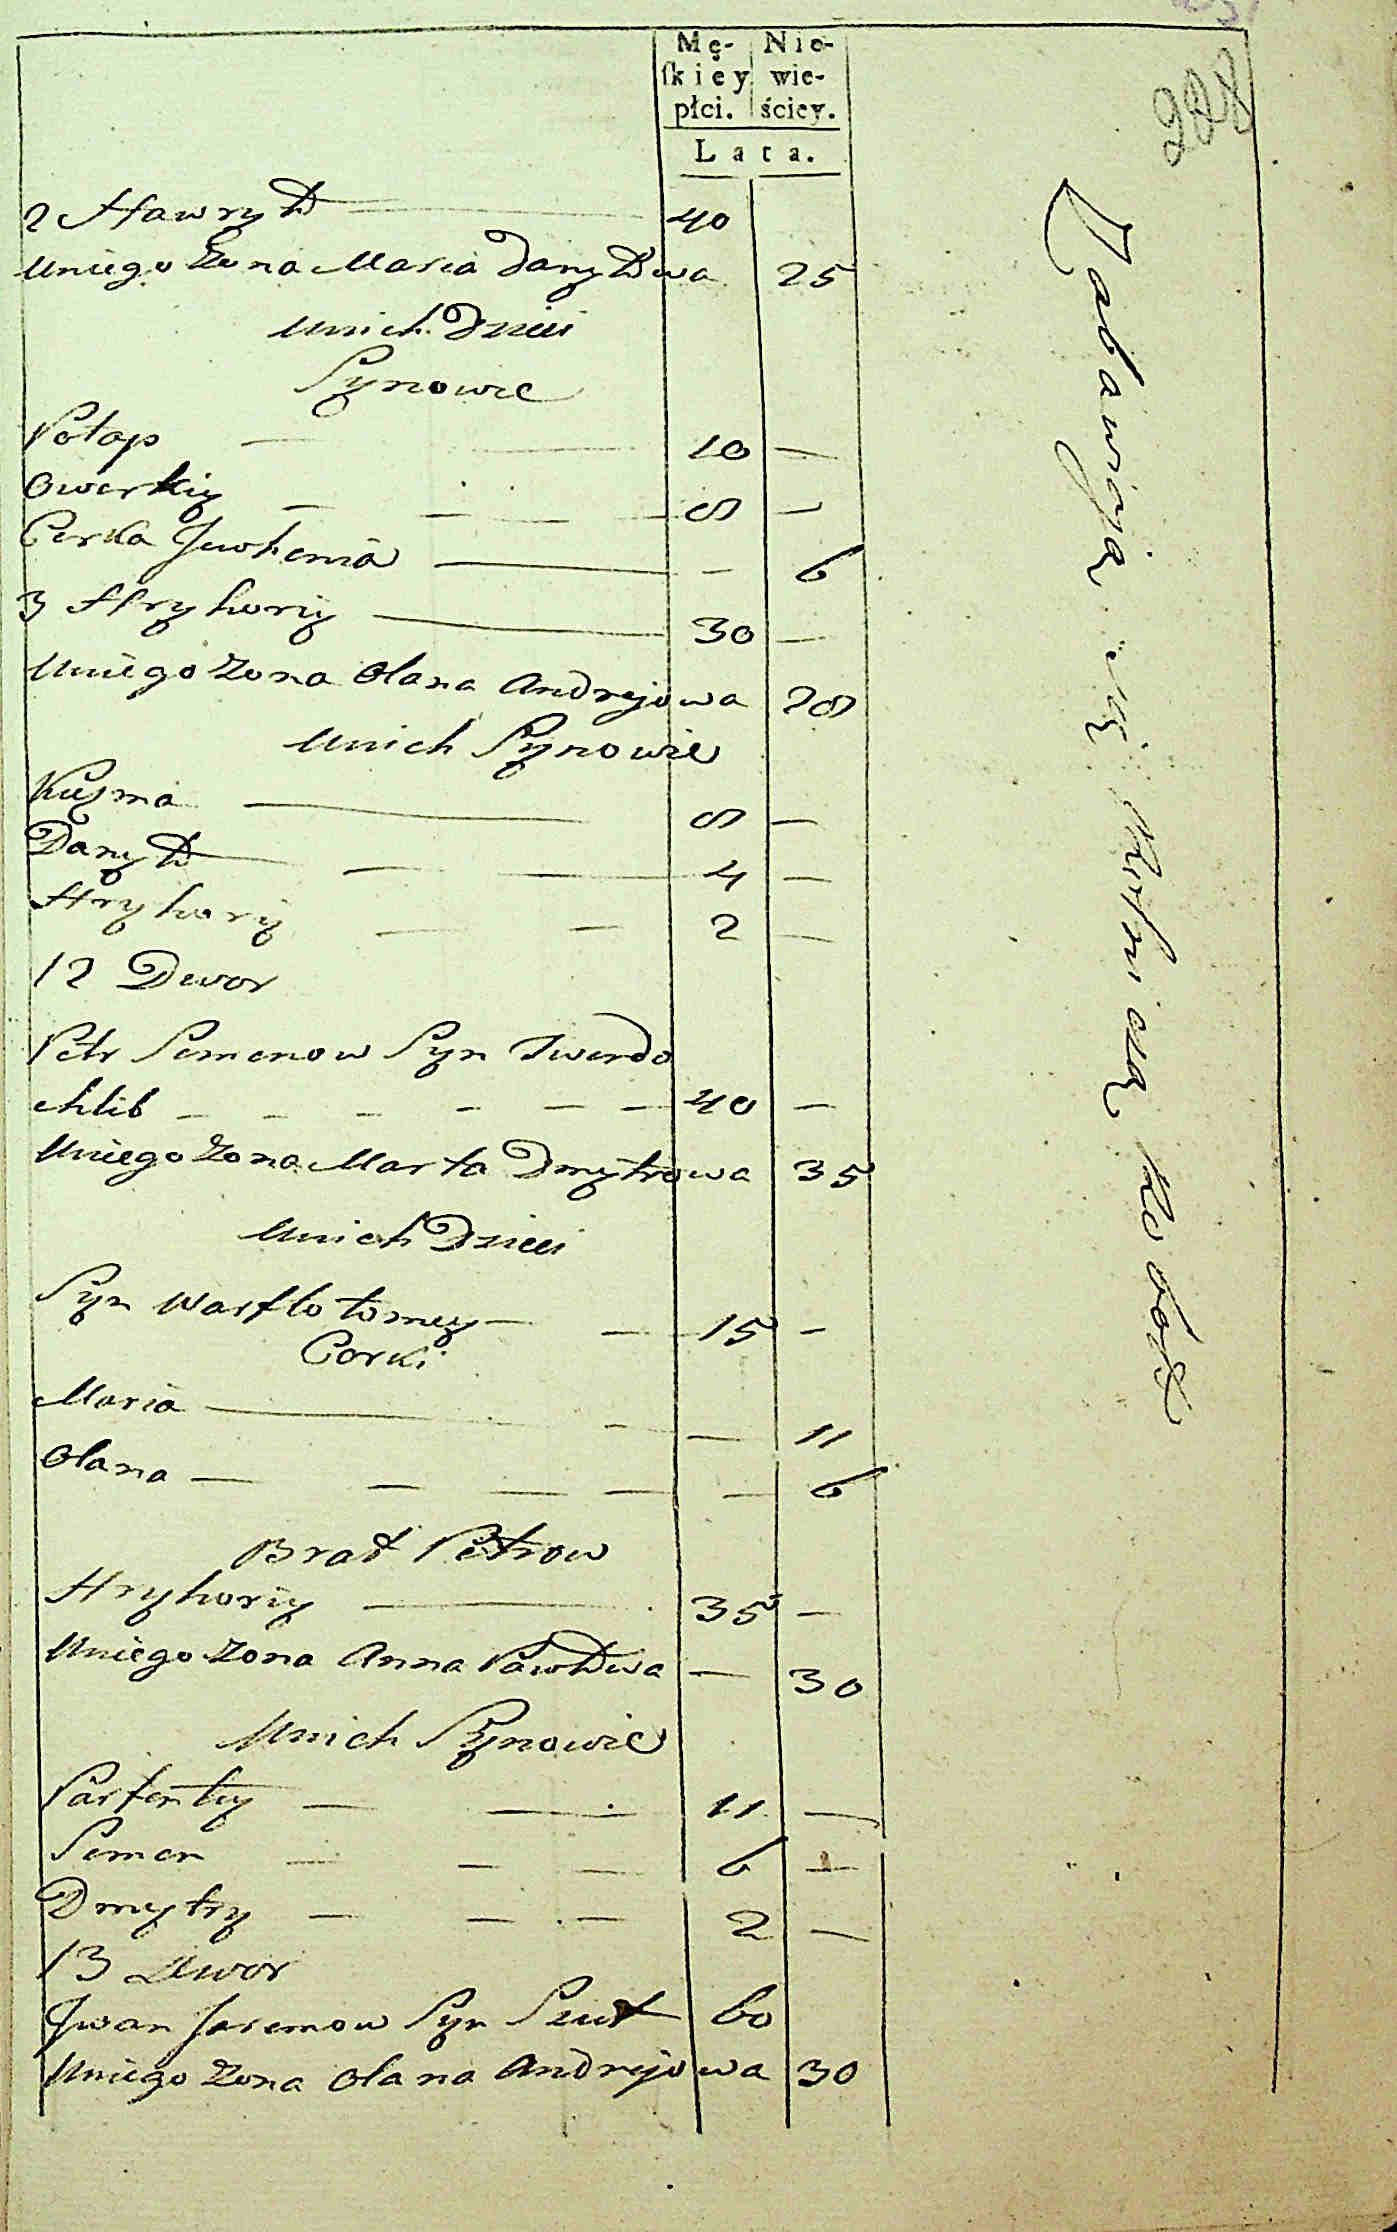 228
Mę- Nie-
ſkiey wie-
płci. ściey.
Lata.
2 Hawryło 40
Uniego Żona Maria Daryłowa 25
Unich Dzieci
Synowie
Potap 10 —
Owerkiy 8 —
Corka Jewhenia — 6
3 Hryhoriy 30 —
Uniego Zona Olana Andrejowa 28
Unich Synowie
Kuzma 8 —
Daryło 4 —
Hryhoriy 2 —
12 Dwor
Petr Semenow Syn Twerdo
chlib 40 —
Uniego Zona Marta Dmytrowa 35
Unich Dzieci
Syn Warfłotomey 15 —
Corki
Maria — 11
Olana — 6
Brat Petrow
Hryhoriy 35 —
Uniego Zona Anna Pawłowa — 30
Unich Synowie
Parfentiy 11 —
Semen 6 —
Dmytry 2 —
13 Dwor
Jwan Jaremow Syn 60
Uniego Zona Olana Andrejowa 30
Zabawiają się